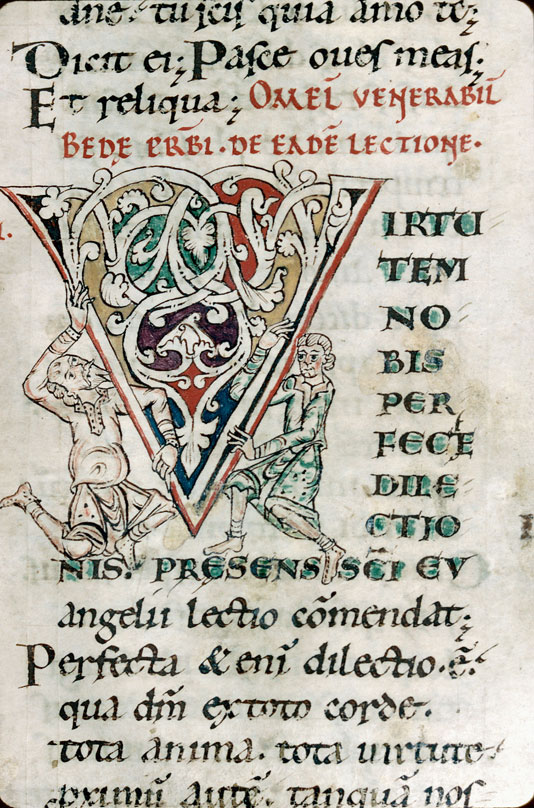 dñe. tu scis quia amo te;
Dicit ei; Pasce oves meas;
Et reliqua; OMEL̄ VENERABIL̄
BEDĘ PRB̄I. DE EADĒ LECTIONE.
VIRTU
TEM
NO
BIS
PER
FECTE
DILE
CTIO
NIS. PRESENS SC̄I EV
angelii lectio cōmendat;
Perfecta & enī dilectio. ē.
qua dm̄ ex toto corde.
tota anima. tota virtute
pximū autē. tanquā nos